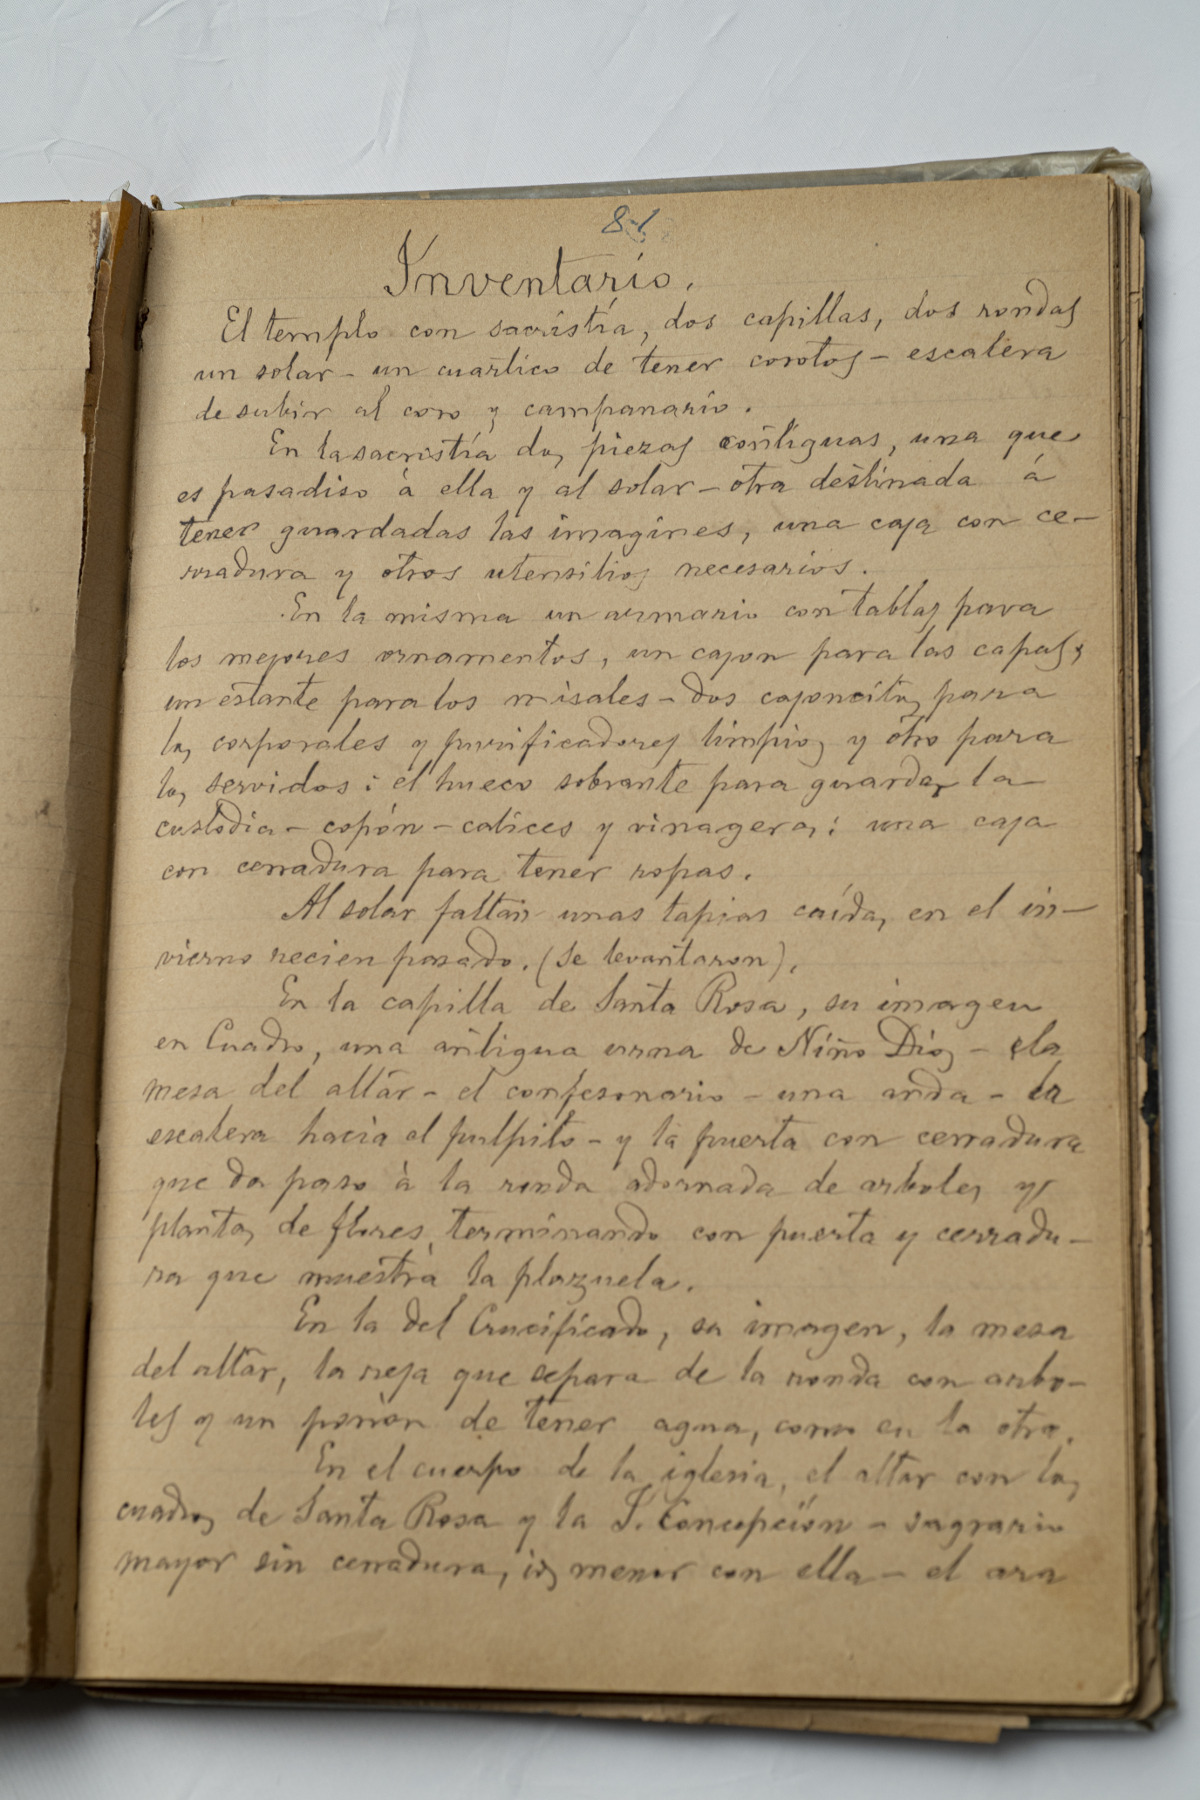 81
Inventario.
El templo con sacristía, dos capillas, dos rondas
un solar – un cuartico de tener corotos – escalera
de subir al coro y campanario.
En la sacristía dos piezas contiguas, una que
es pasadiso à ella y al solar – otra destinada á
tener guardadas las imagines, una caja con ce–
rradura y otros utensilios necesarios.
En la misma un armario con tablas para
los mejores ornamentos, un cajon para las capas,
un estante para los misales – dos cajoncitos para
los corporales y purificadores limpios y otro para
los servidos: el hueco sobrante para guardar la
custodia – copón – calices y vinageras: una caja
con cerradura para tener ropas.
Al solar faltan unas tapias caídas en el in–
vierno recien pasado. (Se levantaron).
En la capilla de Santa Rosa, su imagen
en Cuadro, una antigua urna de Niño Dios – la
mesa del altar – el confesonario – una anda – la
escalera hacia el pulpito – y la puerta con cerradura
que da paso à la ronda adornada de arboles y
plantas de flores, terminando con puerta y cerradu–
ra que muestra la plazuela.
En la del Crucificado, su imagen, la mesa
del altar, la reja que separa de la ronda con arbo–
les y un poron de tener agua, como en la otra.
En el cuerpo de la iglesia, el altar con los
cuadros de Santa Rosa y la I. Concepción – sagrario
mayor sin cerradura, menor con ella – el ara